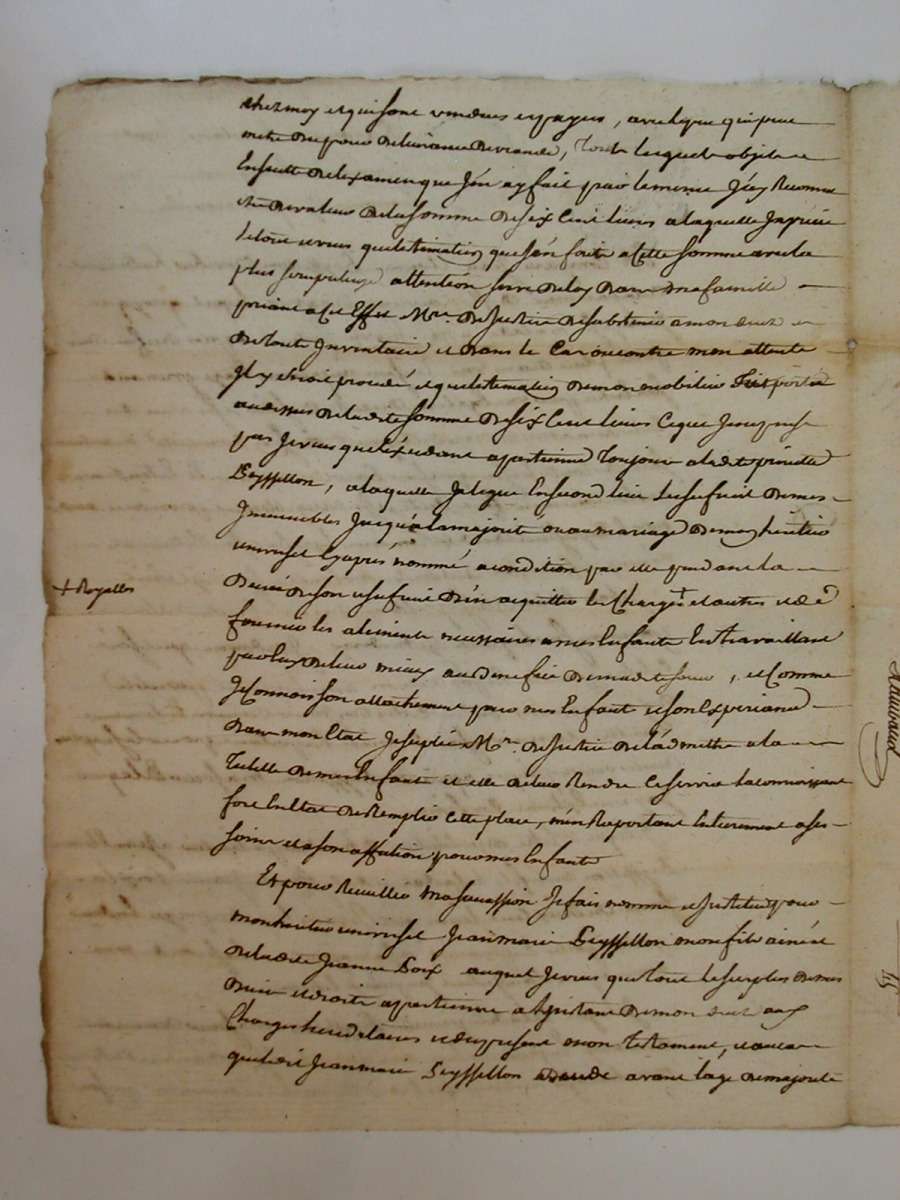 chez moy et qui sont vendues et payes, avec le peu qui peut
metre du pour delivrance de viande, Tout lesquels objets
Ensuitte de lexamen que Jén ay fait par le meme Jéy Reconnu
etre de valeur de la somme de six Cent livres a laquelle Japrécie
le tout et veus que lestimation que jén fait a Cette somme avec la
plus scrupuleuse attention serve de loy dans ma famille
priant a Cet Effet Mrs. de Justice de sabstenir a mon deces
de tout Inventaire et dans le Cas ou contre mon attente
Jl y seroit procedé et que lestimation de mon mobilier fut portée
au dessus de ladte somme de six Cent livres Ce que Je ne pense
pas Je veus que lexcedant apartienne Toujours a ladte
Peyssellon, a laquelle Je legue En second lieu Lusufruit de mes
Immeubles Jusqu'a la majorité ou au mariage de mon héritier
universel Cy après nommé a condition par elle pendant la
+ Royalles
Durée de son usufruit d'en acquitter les Charges + et autres et de
fournir les aliments necessaires a mes Enfants En travaillant
par Eux de leur mieux au Benefice de madte soeur, et Comme
Je Connois son attachement pour mes Enfants et son Experiance
dans mon Etat Je suplie Mrs. de Justice de l'admettre a la
Tutelle de mes Enfants et elle de leur Rendre Ce service la connoissant
fort En Etat de Remplir Cette place, m'en Raportant Entierement a ses
soins et a son affection pour mes Enfants
Et pour Recuillir ma sucession Je fais nomme et Jnstitue pour
mon heritier universel Jean marie Peyssellon mon fils ainé et
de ladte Jeanne Poix auquel Je veus que tout le surplus de mes
Biens et droits apartienne a lJnstant de mon deces aux
Charges hereditaires et du present mon Testament, et au cas
que ledit Jean marie Peyssellon decede avant lage de majorité
Rambaud